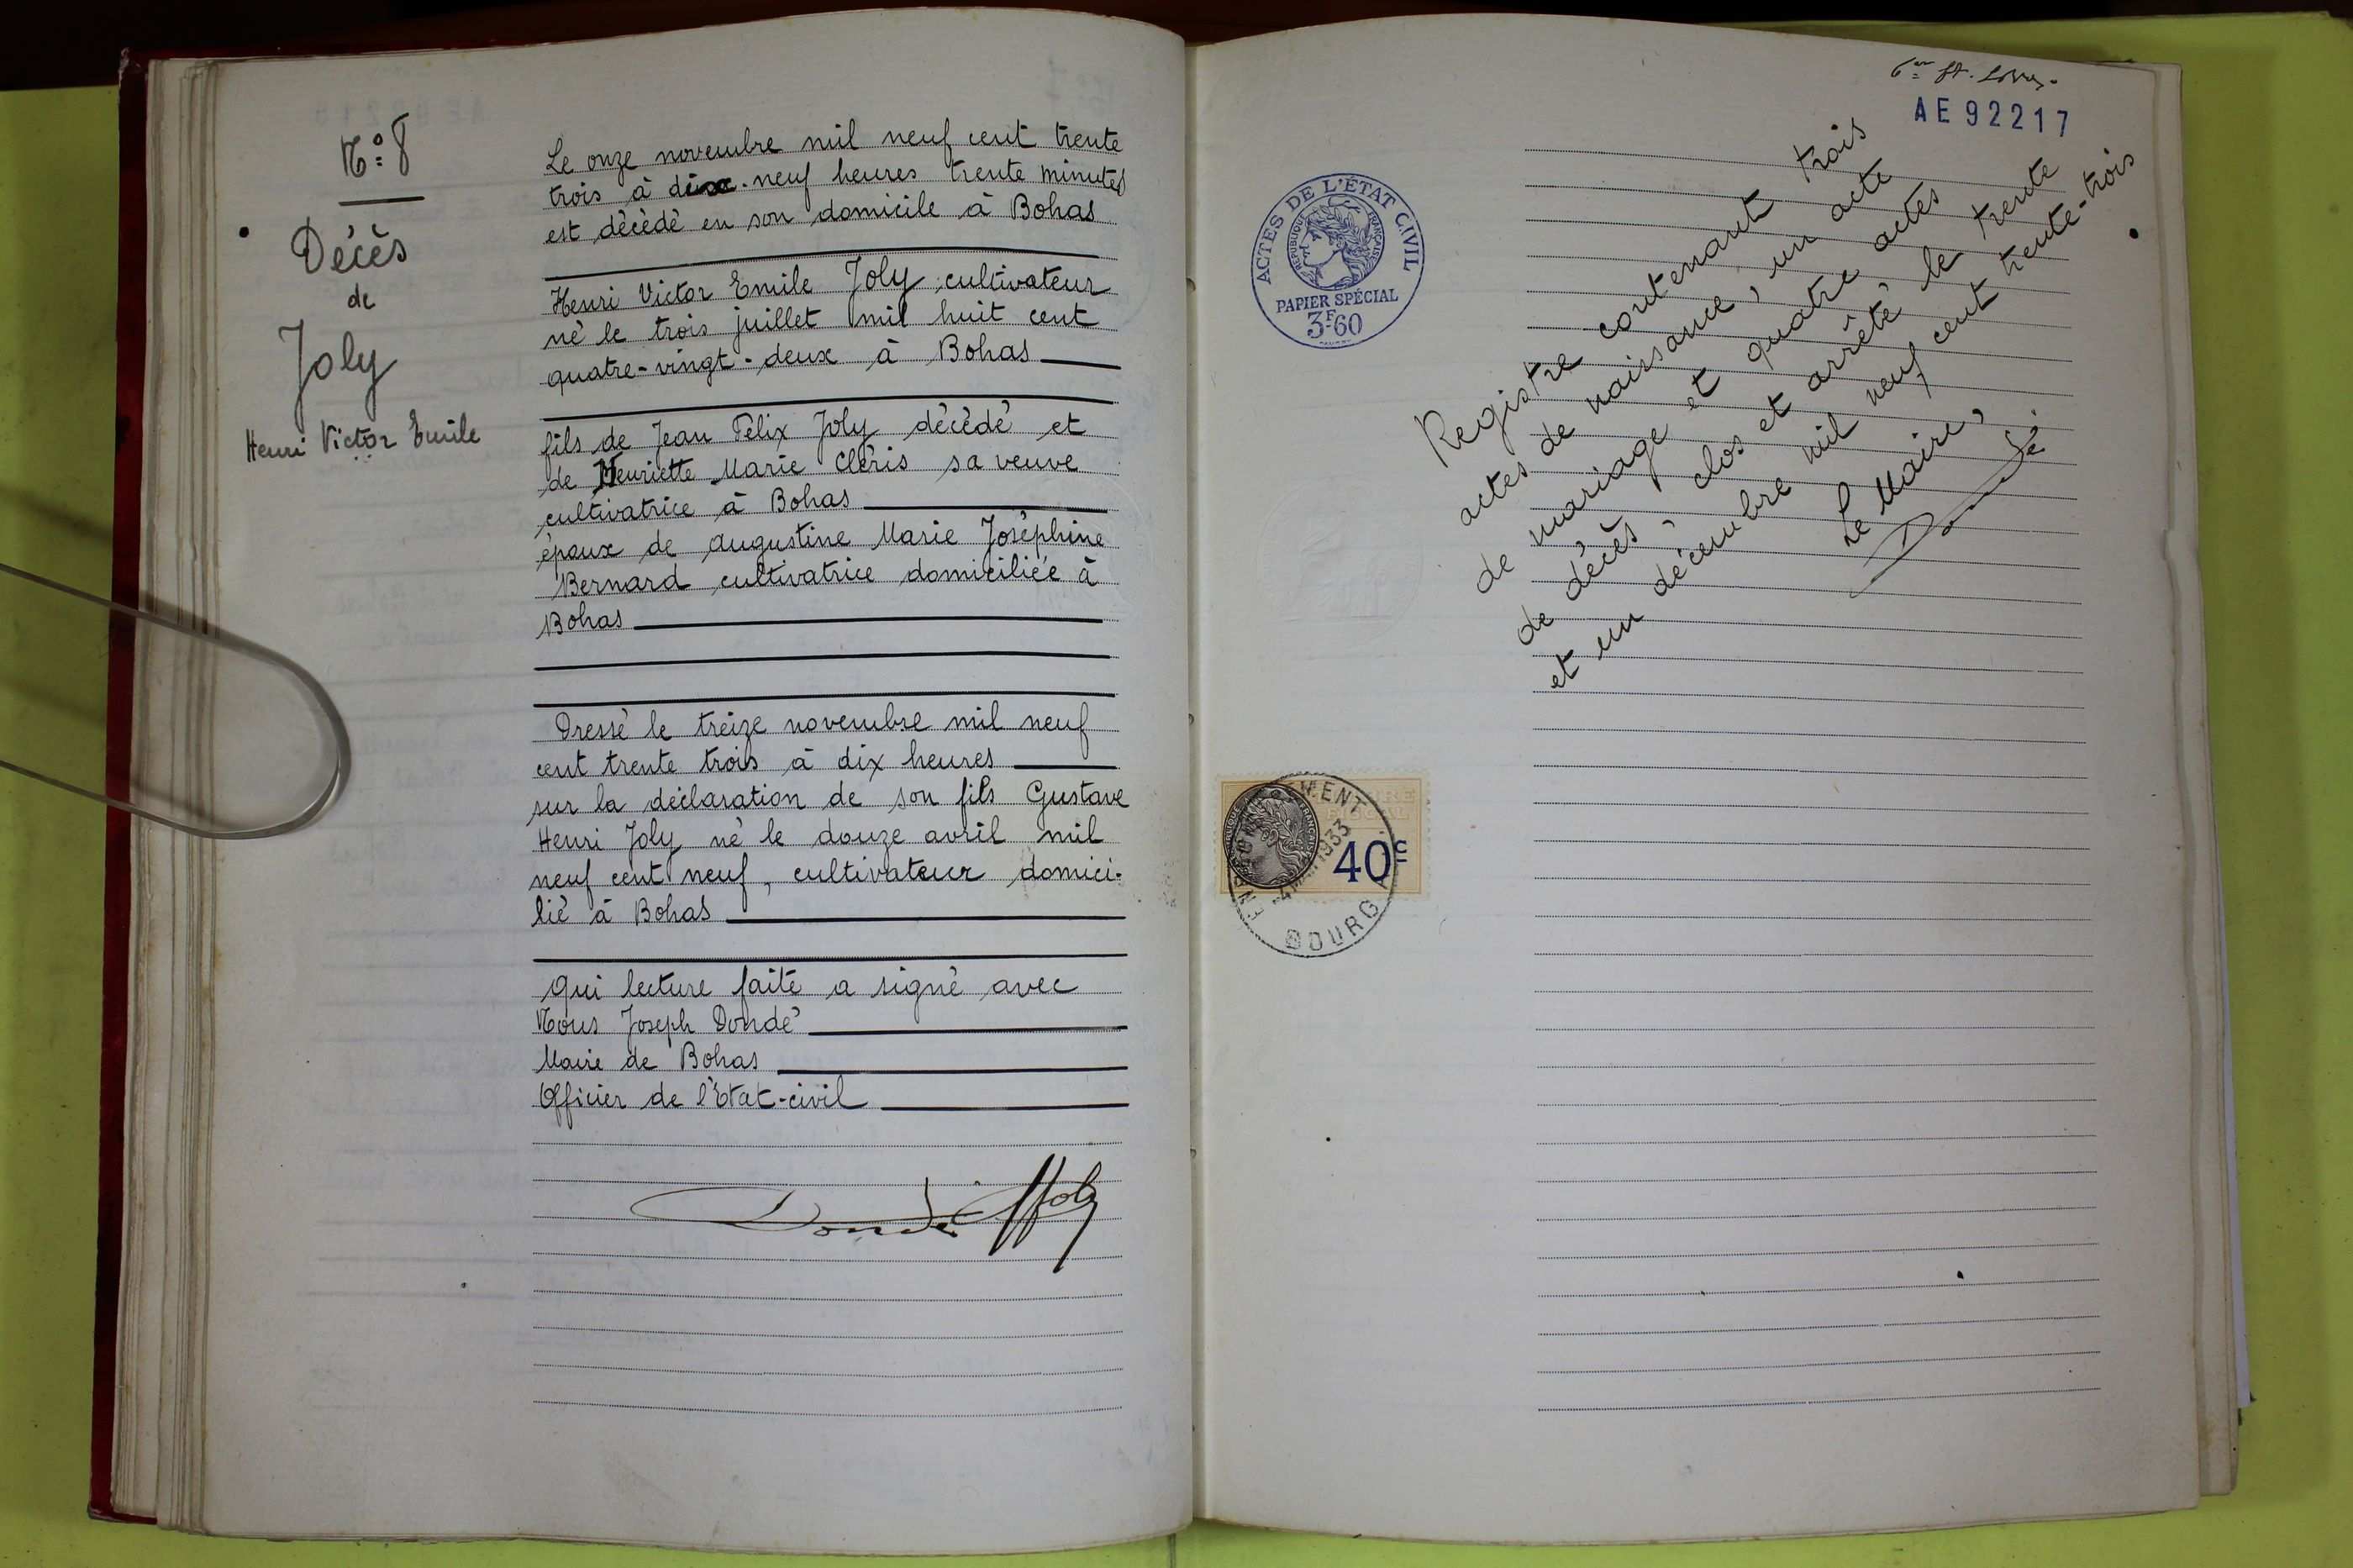 N° 8
Décès
de
Joly
Henri Victor Emile
Le onze novembre mil neuf cent trente
trois à dix-neuf heures trente minutes
est décédé en son domicile à Bohas
Henri Victor Emile Joly, cultivateur
né le trois juillet mil huit cent
quatre-vingt-deux à Bohas
fils de Jean Félix Joly décédé et
de Henriette Marie Cléris sa veuve
cultivatrice à Bohas
époux de Augustine Marie Joséphine
Bernard cultivatrice domiciliée à
Bohas
Dressé le treize novembre mil neuf
cent trente trois à dix heures
sur la déclaration de son fils Gustave
Henri Joly né le douze avril mil
neuf cent neuf, cultivateur domici-
lié à Bohas
Qui lecture faite a signé avec
Nous Joseph Dondé
Maire de Bohas
Officier de l'Etat-civil
Dondé Joly
AE 92217
ACTES DE L'ÉTAT CIVIL
RÉPUBLIQUE FRANÇAISE
PAPIER SPÉCIAL
3F60
Registre contenant trois
actes de naissance, un acte
de mariage et quatre actes
de décès, clos et arrêté le trente
et un décembre mil neuf cent trente-trois
Le Maire,
Dondé
ENREGISTREMENT
FISCAL
1933
40c
BOURG